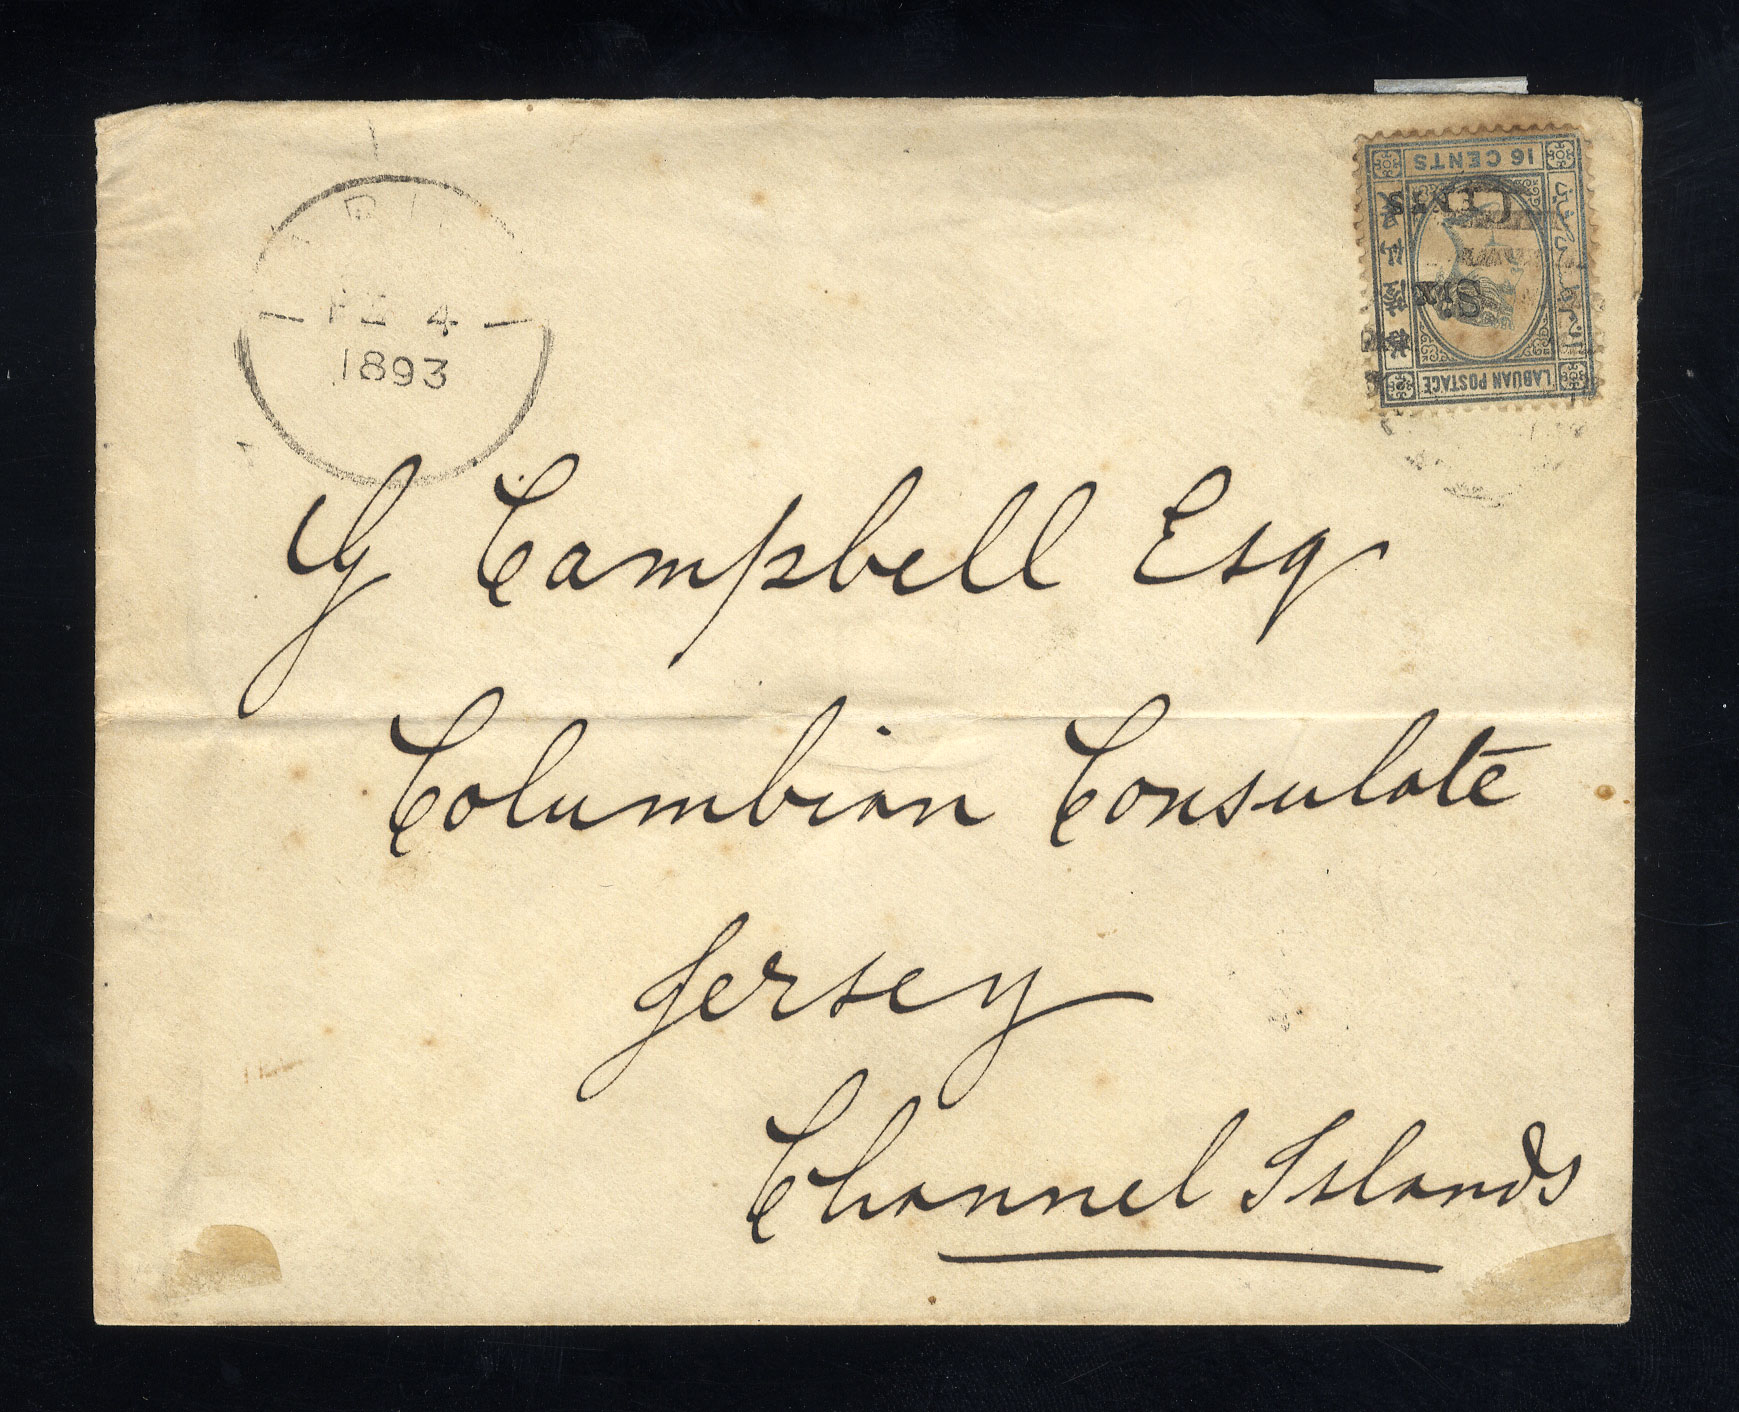 FE 4
1893
16 CENTS
CENTS
Six
LABUAN POSTAGE
G Campbell Esq
Columbian Consulate
Jersey
Channel Islands